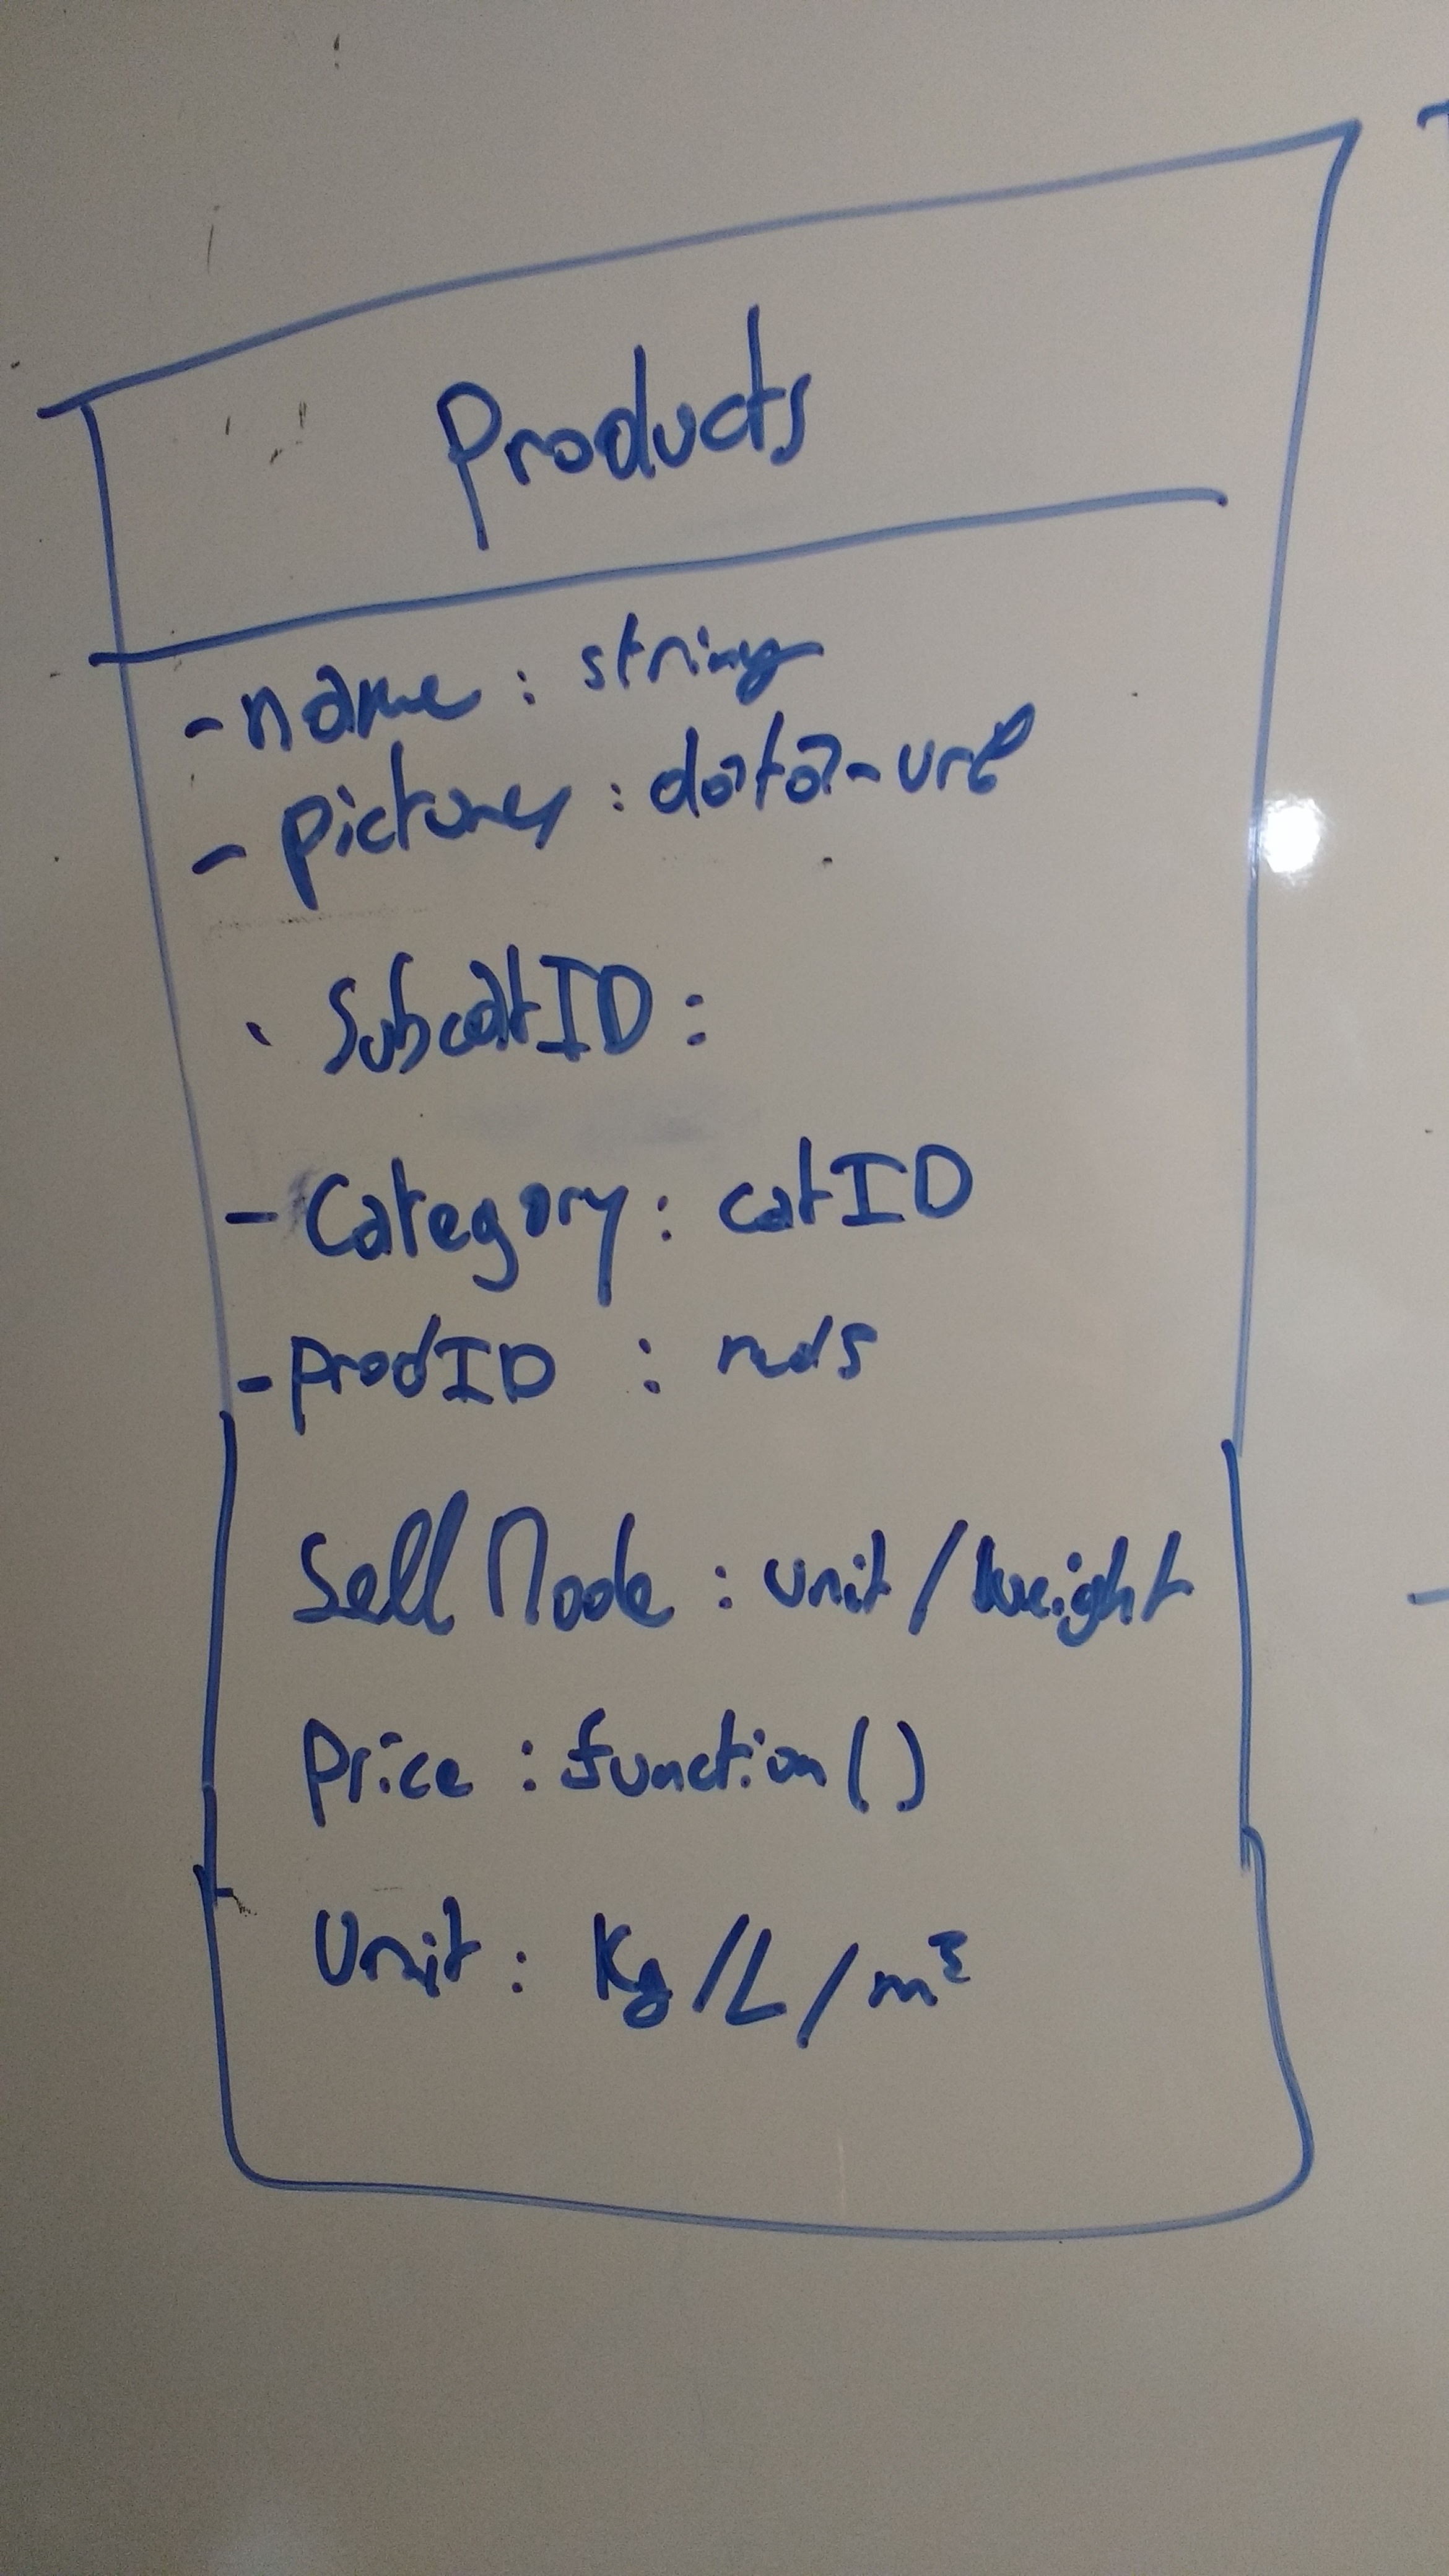 Products
- name : string
- pictures : data-url
- SubcatID :
- Category : catID
- prodID :
Sell Mode : unit / weight
Price : function()
Unit : Kg/L/m³